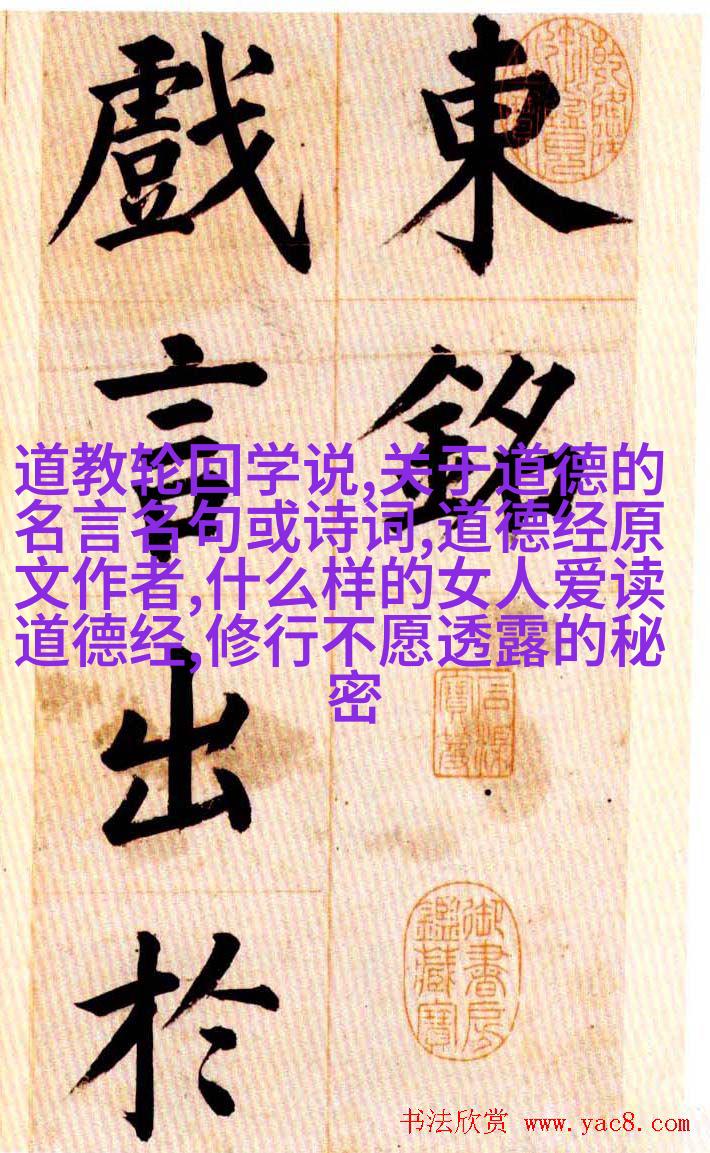 東銘
戲言出於
道教轮回学说,关于道德的
名言名句或诗词,道德经原
文作者,什么样的女人爱读
道德经,修行不愿透露的秘
密
石渠
寶笈
御書房
鑑藏寶
书法欣赏 www.yac8.com